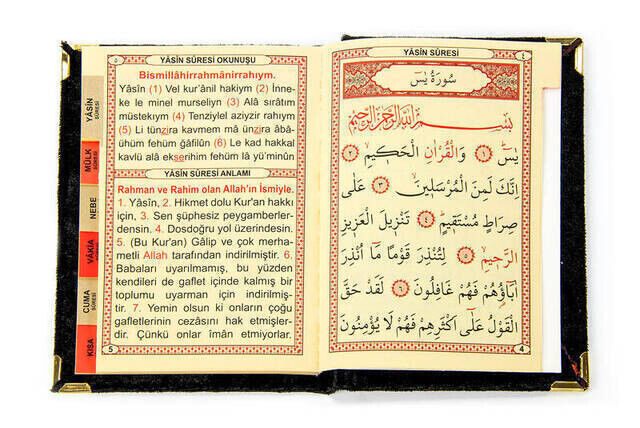 YÂSİN SÛRESİ
٤
سُورَةُ يٰسٓ
بِسْمِ اللّٰهِ الرَّحْمٰنِ الرَّحِيمِ
يٰسٓ ﴿١﴾ وَالْقُرْاٰنِ الْحَكِيمِ ﴿٢﴾
اِنَّكَ لَمِنَ الْمُرْسَلِينَ ﴿٣﴾ عَلٰى
صِرَاطٍ مُسْتَقِيمٍ ﴿٤﴾ تَنْزِيلَ الْعَزِيزِ
الرَّحِيمِ ﴿٥﴾ لِتُنْذِرَ قَوْمًا مَٓا اُنْذِرَ
اٰبَٓاؤُهُمْ فَهُمْ غَافِلُونَ ﴿٦﴾ لَقَدْ حَقَّ
الْقَوْلُ عَلٰٓى اَكْثَرِهِمْ فَهُمْ لَا يُؤْمِنُونَ
4
٥
YÂSİN SÛRESİ OKUNUŞU
Bismillâhirrahmânirrahıym.
Yâsîn (1) Vel kur'ânil hakiym (2) İnne-
ke le minel murseliyn (3) Alâ sırâtım
müstekıym (4) Tenziylel aziyzir rahıym
(5) Li tünzira kavmem mâ ünzira âbâ-
ühüm fehüm ğâfilûn (6) Le kad hakkal
kavlü alâ ekserihim fehüm lâ yü'minûn
YÂSİN SÛRESİ ANLAMI
Rahman ve Rahim olan Allah'ın İsmiyle.
1. Yâsîn, 2. Hikmet dolu Kur'an hakkı
için, 3. Sen şüphesiz peygamberler-
densin. 4. Dosdoğru yol üzerindesin.
5. (Bu Kur'an) Gâlip ve çok merha-
metli Allah tarafından indirilmiştir. 6.
Babaları uyarılmamış, bu yüzden
kendileri de gaflet içinde kalmış bir
toplumu uyarman için indirilmiş-
tir. 7. Yemin olsun ki onların çoğu
gafletlerinin cezâsını hak etmişler-
dir. Çünkü onlar îman etmiyorlar.
5
YÂSİN
SÛRESİ
MÜLK
SÛRESİ
NEBE
VÂKIA
SÛRESİ
CUMA
SÛRESİ
KISA